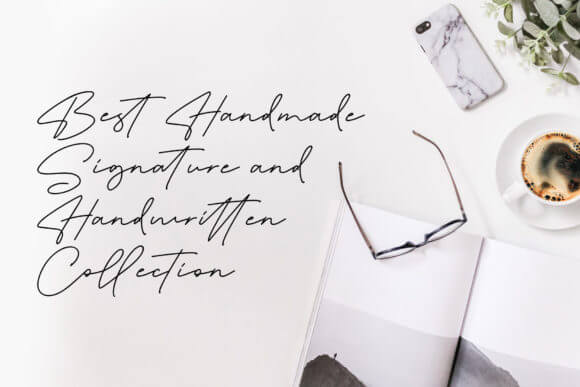 Best Handmade
Signature and
Handwritten
Collection